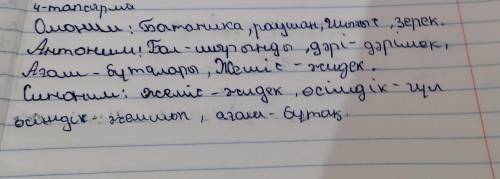 4-тапсырма
Омоним: Ботаника, раушан, шырыс, зерек.
Антоним: Бал-шырынды, дәрі-дәрілік,
Ағаш-бұталары, Жеміс-жидек.
Синоним: жеміс-жидек, өсімдік-гүл
өсімдік-жемшөп, ағаш-бұтақ.